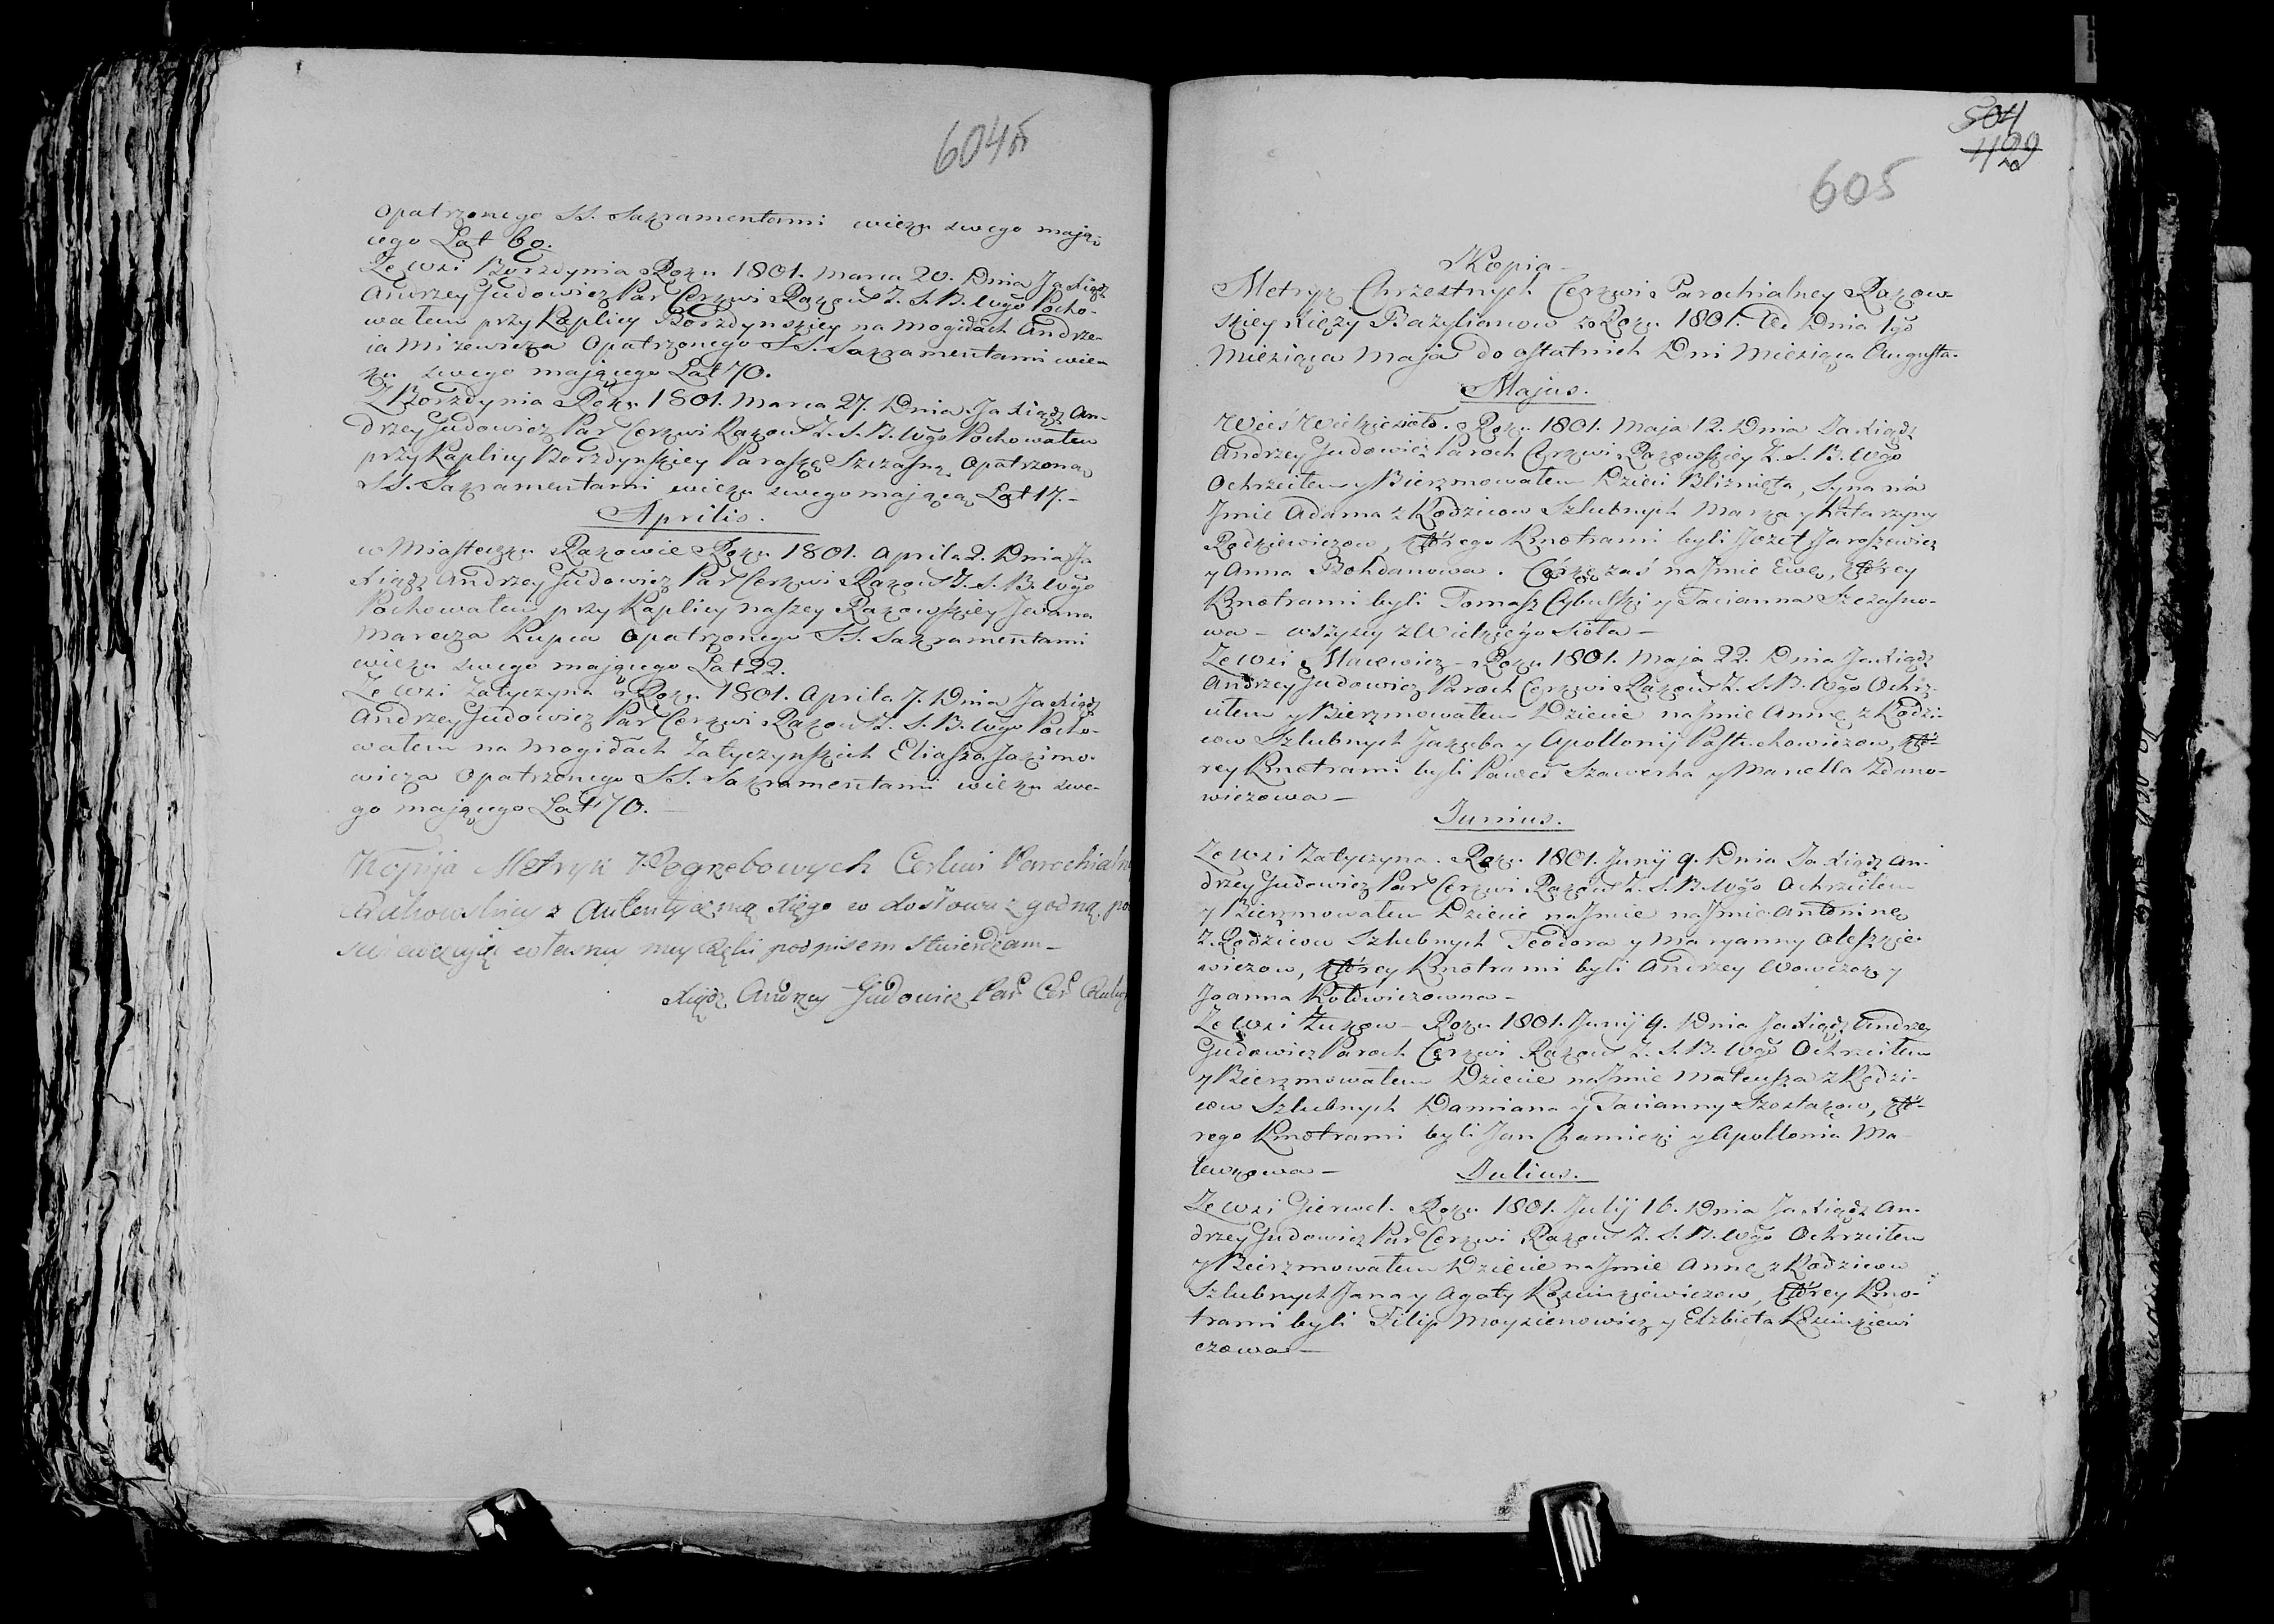 604 об
opatrzonego SS. Sakramentami wieku swego mają:
cego Lat 60.
Ze Wsi Borzdynia Roku 1801. Marca 20. Dnia Ja Xiądz
Andrzey Judowicz Par Cerkwi Rakow Z. S. B. Wgo Pocho-
wałem przy Kaplicy Borzdynskiey na Mogiłach Andrze-
ia Mizewicza Opatrzonego SS. Sakramentami wie-
ku swego mającego Lat 70.
Z Borzdynia Roku 1801. Marca 27. Dnia Ja Xiądz An-
drzey Judowicz Par Cerkwi Rakow Z. S. B. Wgo Pochowałem
przy Kaplicy Borzdynskiey Paraskę Szczasną Opatrzoną
SS. Sakramentami wieku swego mającą Lat 17.-
Aprilis.
w Miasteczku Rakowie Roku 1801. Aprila 2. Dnia Ja
Xiądz Andrzey Judowicz Par Cerkwi Rakow Z. S. B. Wgo
Pochowałem przy Kaplicy naszey Rakowskiey Jewana
Marcza Kupca Opatrzonego SS. Sakramentami
wieku swego mającego Lat 22.
Ze Wsi Zatyczyna Roku 1801. Aprila 7. Dnia Ja Xiądz
Andrzey Judowicz Par Cerkwi Rakow Z. S. B. Wgo Pocho-
wałem na Mogiłach Zatyczynskich Eliasza Jazimo-
wicza Opatrzonego SS. Sakramentami wieku swe-
go mającego Lat 70. —
Kopija Metryk Pogrzebowych Cerkwi Parochialn
Rakowskiey z Autentyczną Xięgo co do słowa zgodną, po
swiadczając własney mey Ręki podpisem stwierdzam -
Xiądz Andrzey Judowicz Par Cer Rakow
504
499
605
Kopia -
Metryk Chrzestnych Cerkwi Parochialney Rakow-
skiey Xięży Bazylianow z Roku 1801. Od Dnia 1go
Miesiąca Maja do ostatnich Dni Miesiąca Augusta.
Majus.
Wieś Wielkiesioło. Roku 1801. Maja 12. Dnia Ja Xiądz
Andrzey Judowicz Paroch Cerkwi Rakowskiey Z. S. B. Wgo
Ochrzciłem y Bierzmowałem Dzieci Bliznięta, Syna na
Jmie Adama z Rodzicow Szlubnych Marka y Katarzyny
Rodziewiczow, którego Kmotrami byli Jozef Jaroszewicz
y Anna Bohdanowa. Córkę zaś na Jmie Ewę, którey
Kmotrami byli Tomasz Cybulski y Tacianna Szczasno-
wa - wszyscy z Wielkiego Sioła -
Ze Wsi Macewicz - Roku 1801. Maja 22. Dnia Ja Xiądz
Andrzey Judowicz Paroch Cerkwi Rakow Z. S. B. Wgo Ochrz-
ciłem y Bierzmowałem Dziecie na Jmie Annę z Rodzi-
cow Szlubnych Jakuba y Apollonij Pastuchowiczow, któ-
rey Kmotrami byli Paweł Szawerha y Marella Zdano-
wiczowa -
Junius.
Ze Wsi Zatyczyna. Roku 1801. Junij 9. Dnia Ja Xiądz An-
drzey Judowicz Par Cerkwi Rakow Z. S. B. Wgo Ochrzciłem
y Bierzmowałem Dziecie na Jmie na Jmie Antoninę
z Rodzicow Szlubnych Teodora y Maryanny Oleszkie-
wiczow, którey Kmotrami byli Andrzey Wowczok y
Joanna Kołdwiczowna -
Ze Wsi Żukow - Roku 1801. Junij 9. Dnia Ja Xiądz Andrzey
Judowicz Paroch Cerkwi Rakow Z. S. B. Wgo Ochrzciłem
y Bierzmowałem Dziecie na Jmie Mateusza z Rodzi-
cow Szlubnych Damiana y Tacianny Szostakow, któ-
rego Kmotrami byli Jan Chamicki y Apollonia Ma-
lewkowa -
Julius.
Ze Wsi Gierwel. Roku 1801. Julij 16. Dnia Ja Xiądz An-
drzey Judowicz Par Cerkwi Rakow Z. S. B. Wgo Ochrzciłem
y Bierzmowałem Dziecie na Jmie Annę z Rodzicow
Szlubnych Jana y Agaty Kościukiewiczow, którey Kmo-
trami byli Filip Moysienowicz y Elzbieta Kościukiewi
czowa -